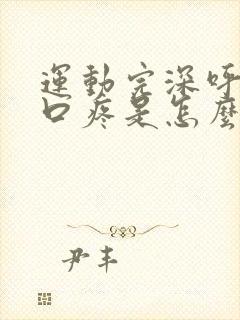 運動完深呼
口疼是怎麼
尹丰